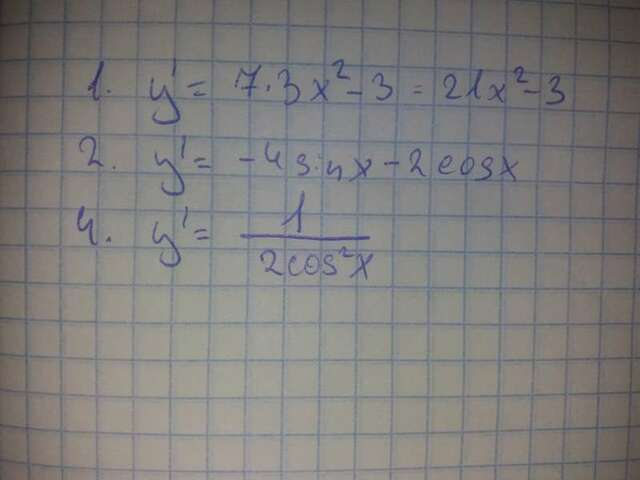 1. y' = 7·3x² - 3 = 21x² - 3
2. y' = -4sinx - 2cosx
4. y' = 1/(2cos²x)